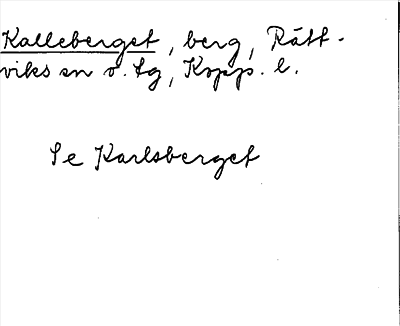 Kalleberget, berg, Rätt-
viks sn o. tg, Kopp. l.
Se Karlsberget